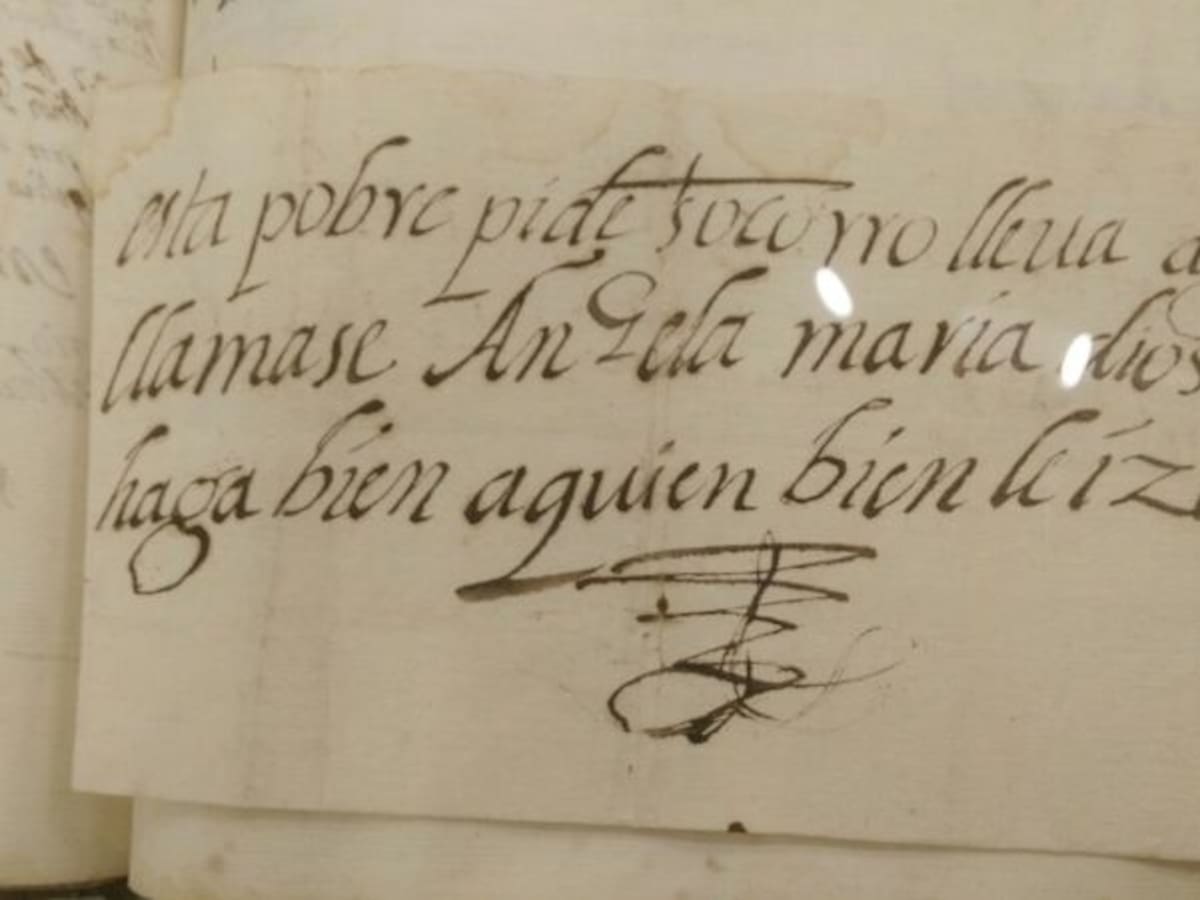 esta pobre pide socorro lleua a
llamase Angela maria dios
haga bien aquien bien le iz